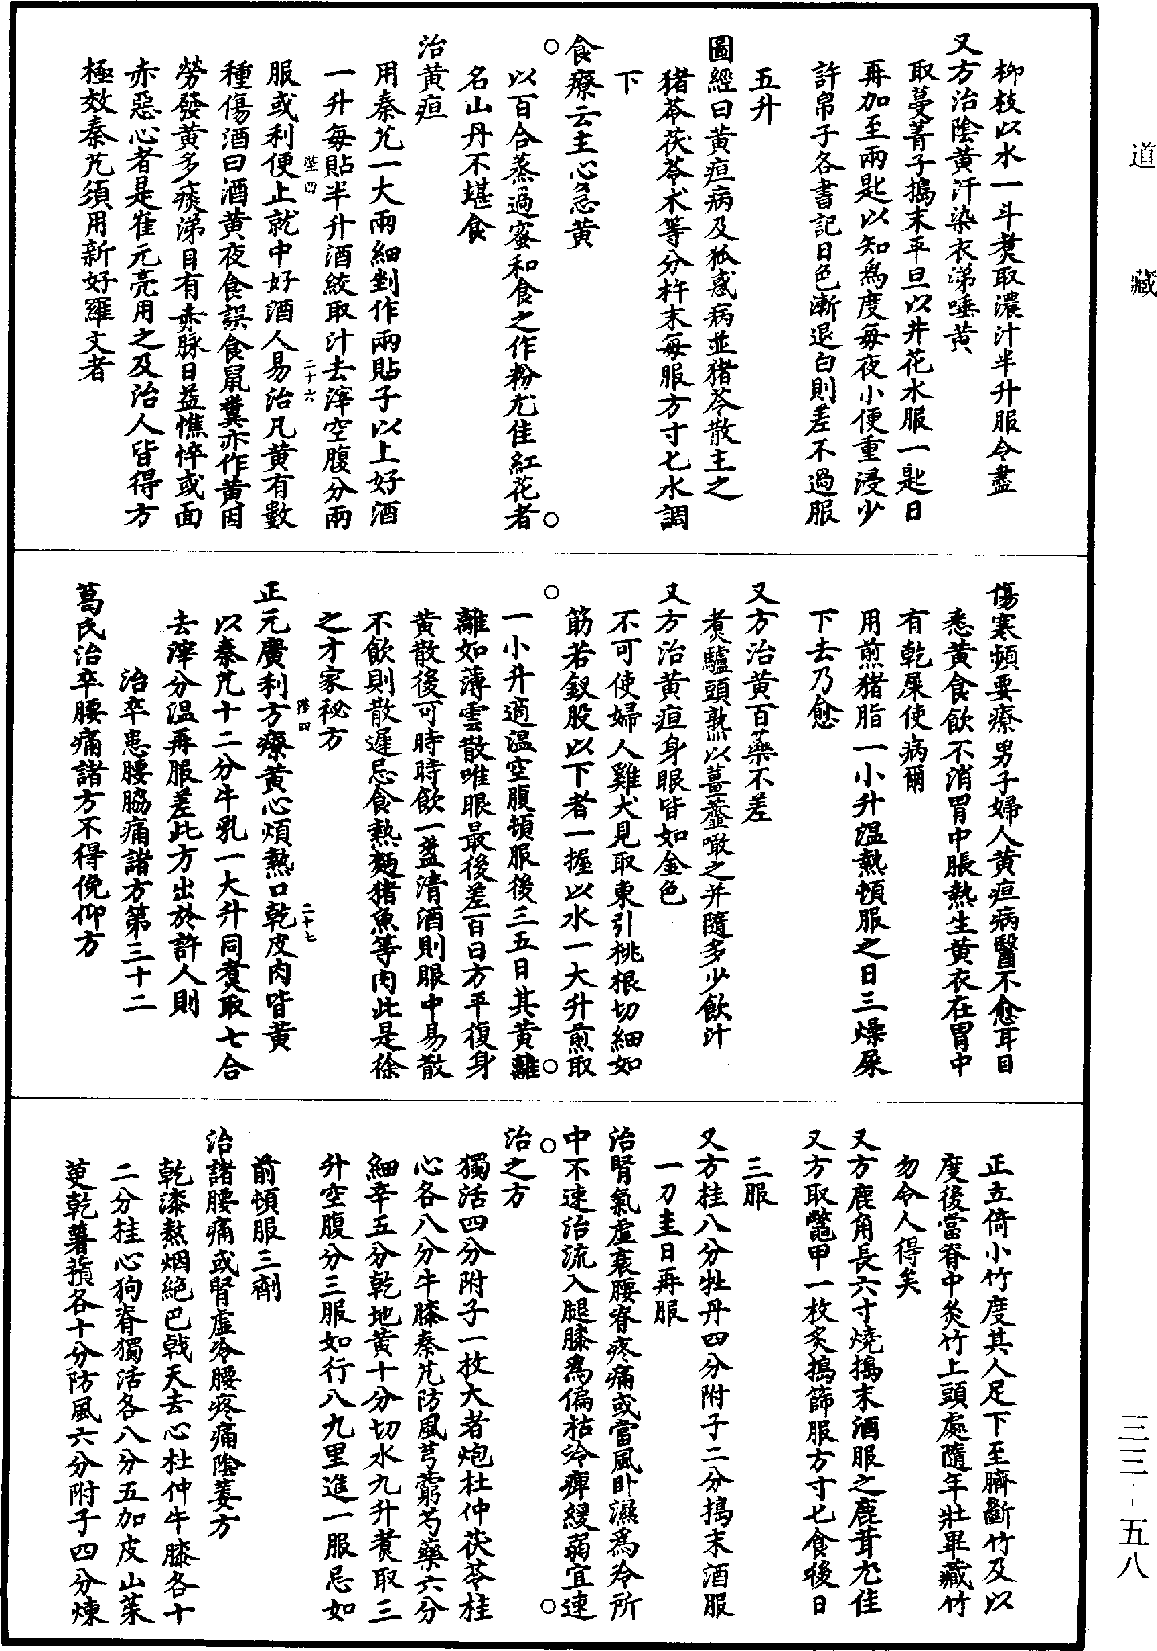 道藏
柳枝以水一斗煑取濃汁半升服令盡
又方治陰黄汗染衣涕唾黄
取蔓菁子搗末平旦以井花水服一匙日
再加至兩匙以知爲度每夜小便重浸少
許帛子各書記日色漸退白則差不過服
五升
圖經曰黄疸病及狐惑病並猪苓散主之
猪苓茯苓术等分杵末每服方寸匕水調
下
食療云主心急黄
以百合蒸過蜜和食之作粉尤佳紅花者
名山丹不堪食
治黄疸
用秦艽一大兩細剉作兩貼子以上好酒
一升每貼半升酒絞取汁去滓空腹分兩
服或利便上就中好酒人易治凡黄有數
種傷酒曰酒黄夜食誤食鼠糞亦作黄因
勞發黄多痰涕目有赤脉日益憔悴或面
赤惡心者是崔元亮用之及治人皆得方
極效秦艽須用新好羅文者
傷寒頻要療男子婦人黄疸病醫不愈耳目
悉黄食飲不消胃中脹熱生黄衣在胃中
有乾屎使病爾
用煎猪脂一小升温熱頓服之日三燥屎
下去乃愈
又方治黄百藥不差
煑驢頭熟以薑虀噉之并隨多少飲汁
又方治黄疸身眼皆如金色
不可使婦人雞犬見取東引桃根切細如
筯若釵股以下者一握以水一大升煎取
一小升適温空腹頓服後三五日其黄離
離如薄雲散唯眼最後差百日方平復身
黄散後可時時飲一盞清酒則眼中易散
不飲則散遲忌食熱麪猪魚等肉此是徐
之才家祕方
正元廣利方療黄心煩熱口乾皮肉皆黄
以秦艽十二分牛乳一大升同煑取七合
去滓分温再服差此方出於許人則
治卒患腰脇痛諸方第三十二
葛氏治卒腰痛諸方不得俛仰方
正立倚小竹度其人足下至臍斷竹及以
度後當脊中灸竹上頭處隨年壯畢藏竹
勿令人得矣
又方鹿角長六寸燒搗末酒服之鹿茸尤佳
又方取鼈甲一枚炙搗篩服方寸匕食後日
三服
又方桂八分牡丹四分附子二分搗末酒服
一刀圭日再服
治腎氣虛衰腰脊疼痛或當風卧濕爲冷所
中不速治流入腿膝爲偏枯冷痺緩弱宜速
治之方
獨活四分附子一枚大者炮杜仲茯苓桂
心各八分牛膝秦艽防風芎藭芍藥六分
細辛五分乾地黄十分切水九升煑取三
升空腹分三服如行八九里進一服忌如
前頓服三劑
治諸腰痛或腎虛冷腰疼痛陰萎方
乾漆熬烟絶巴戟天去心杜仲牛膝各十
二分桂心狗脊獨活各八分五加皮山茱
萸乾薯蕷各十分防風六分附子四分煉
三三·五八